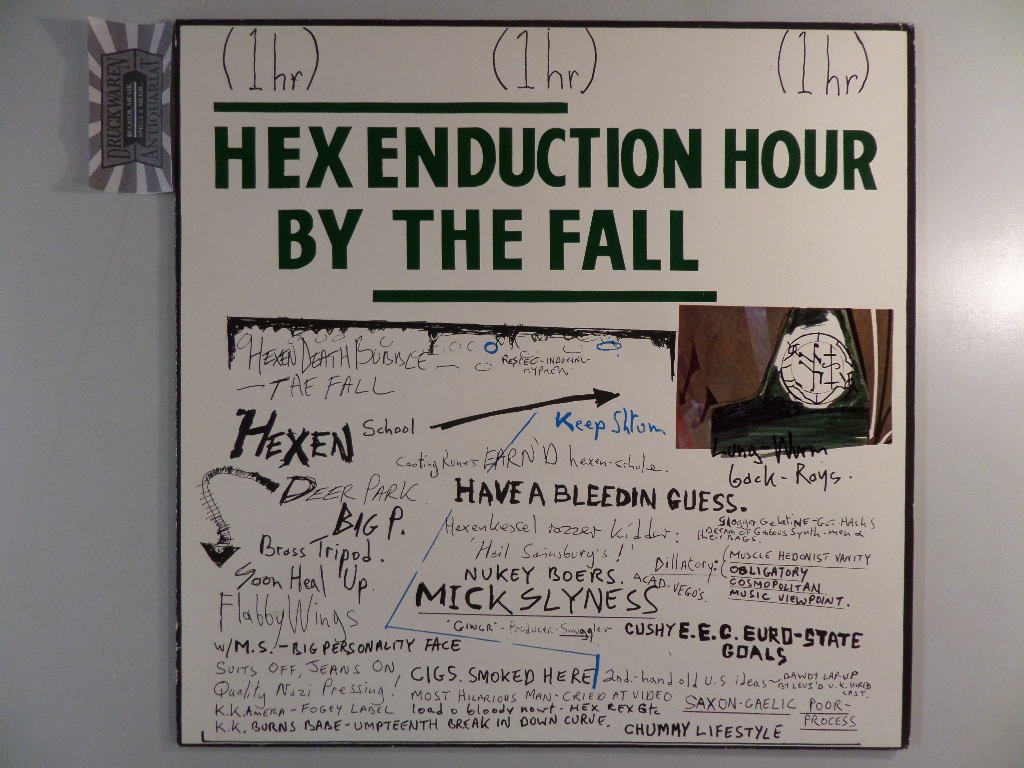 (1hr) (1hr) (1hr)
DRUCKWAREN
ANTIQUARIAT
HEX ENDUCTION HOUR
BY THE FALL
HEXEN DEATH BUBBLE
— THE FALL
HEXEN School
Keep Shtum
EARN'D hexen-schule.
Lung-Wurm
Gack-Rays.
DEER PARK
HAVE A BLEEDIN GUESS.
BIG P.
Hexenkessel rozzer kidder:
Brass Tripod.
'Hail Sainsbury's!'
Soon Heal Up.
NUKEY BOERS.
ACAD. VEGO'S.
Dillatory:
MUSCLE HEDONIST VANITY
OBLIGATORY
COSMOPOLITAN
MUSIC VIEWPOINT.
Flabby Wings
MICK SLYNESS
"GINGR"-Producer-Smuggler
CUSHY E.E.C. EURO-STATE
GOALS
W/M.S. - BIG PERSONALITY FACE
SUITS OFF, JEANS ON
CIGS. SMOKED HERE
2nd-hand old U.S. ideas~
BAWDY LAP-UP
BY LEVI'D U.K. HIRED
CAST.
Quality Nazi Pressing!
MOST HILARIOUS MAN-CRIED AT VIDEO
K.K. AMERA - FOGEY LABEL
load o bloody nowt - HEX REX Etc
SAXON-GAELIC POOR-
PROCESS
K.K. BURNS BABE - UMPTEENTH BREAK IN DOWN CURVE.
CHUMMY LIFESTYLE